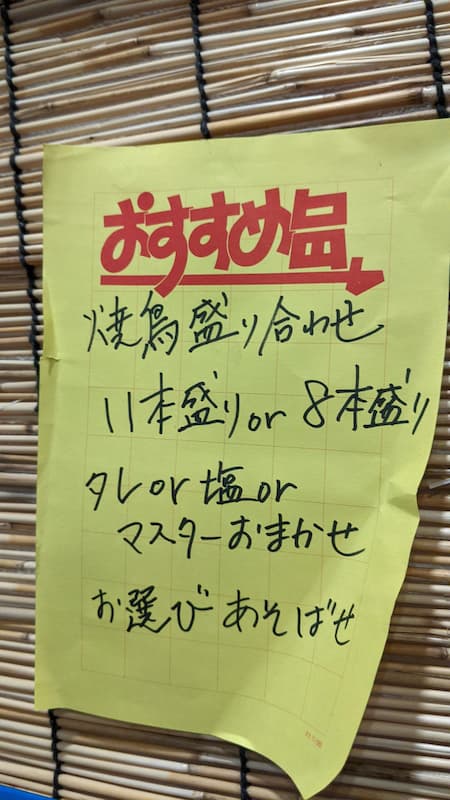 おすすめ品
焼鳥盛り合わせ
11本盛り or 8本盛り
タレ or 塩 or
マスターおまかせ
お選びあそばせ